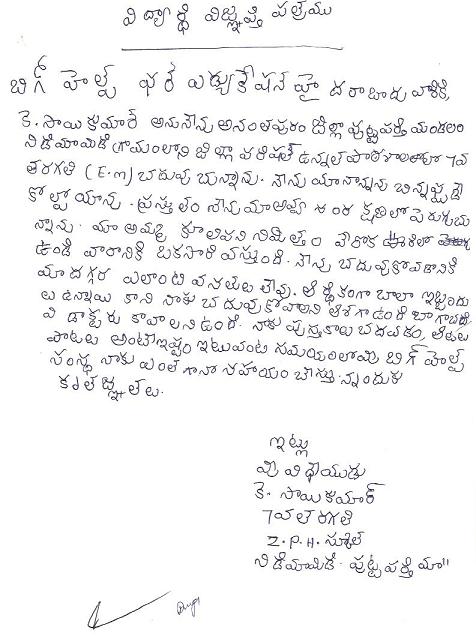 విద్యార్థి విజ్ఞప్తి పత్రము
బిగ్ హెల్ప్ ఫర్ ఎడ్యుకేషన్ హైదరాబాదు వారికి,
కె. సాయి కుమార్ అను నేను అనంతపురం జిల్లా పుట్టపర్తి మండలం
నిడిమామిడి గ్రామంలోని జిల్లా పరిషత్ ఉన్నత పాఠశాలలో 7వ
తరగతి (E.m) చదువుచున్నాను. నేను మా నాన్నను చిన్నప్పుడే
కోల్పోయాను. ప్రస్తుతం నేను మా అవ్వ సంరక్షణలో పెరుగుచు
న్నాను. మా అమ్మ కూలిపని నిమిత్తం వేరొక ఊరిలో
ఉండి వారానికి ఒకసారి వస్తుంది. నేను చదువుకోవడానికి
మా దగ్గర ఎలాంటి వనరులు లేవు. ఆర్థికంగా చాలా ఇబ్బందు
లు ఉన్నాయి కాని నాకు చదువుకోవాలని ఆశగా ఉంది బాగా చది
వి డాక్టరు కావాలని ఉంది. నాకు పుస్తకాలు చదవడం, ఆటలు
పాటలు అంటే ఇష్టం ఇటువంటి సమయంలో మీ బిగ్ హెల్ప్
సంస్థ నాకు ఎంతగానో సహాయం చేస్తున్నందుకు
కృతజ్ఞతలు.
ఇట్లు
మీ విధేయుడు
కె. సాయి కుమార్
7వ తరగతి
Z.P.H. స్కూల్
నిడిమామిడి. పుట్టపర్తి మం''